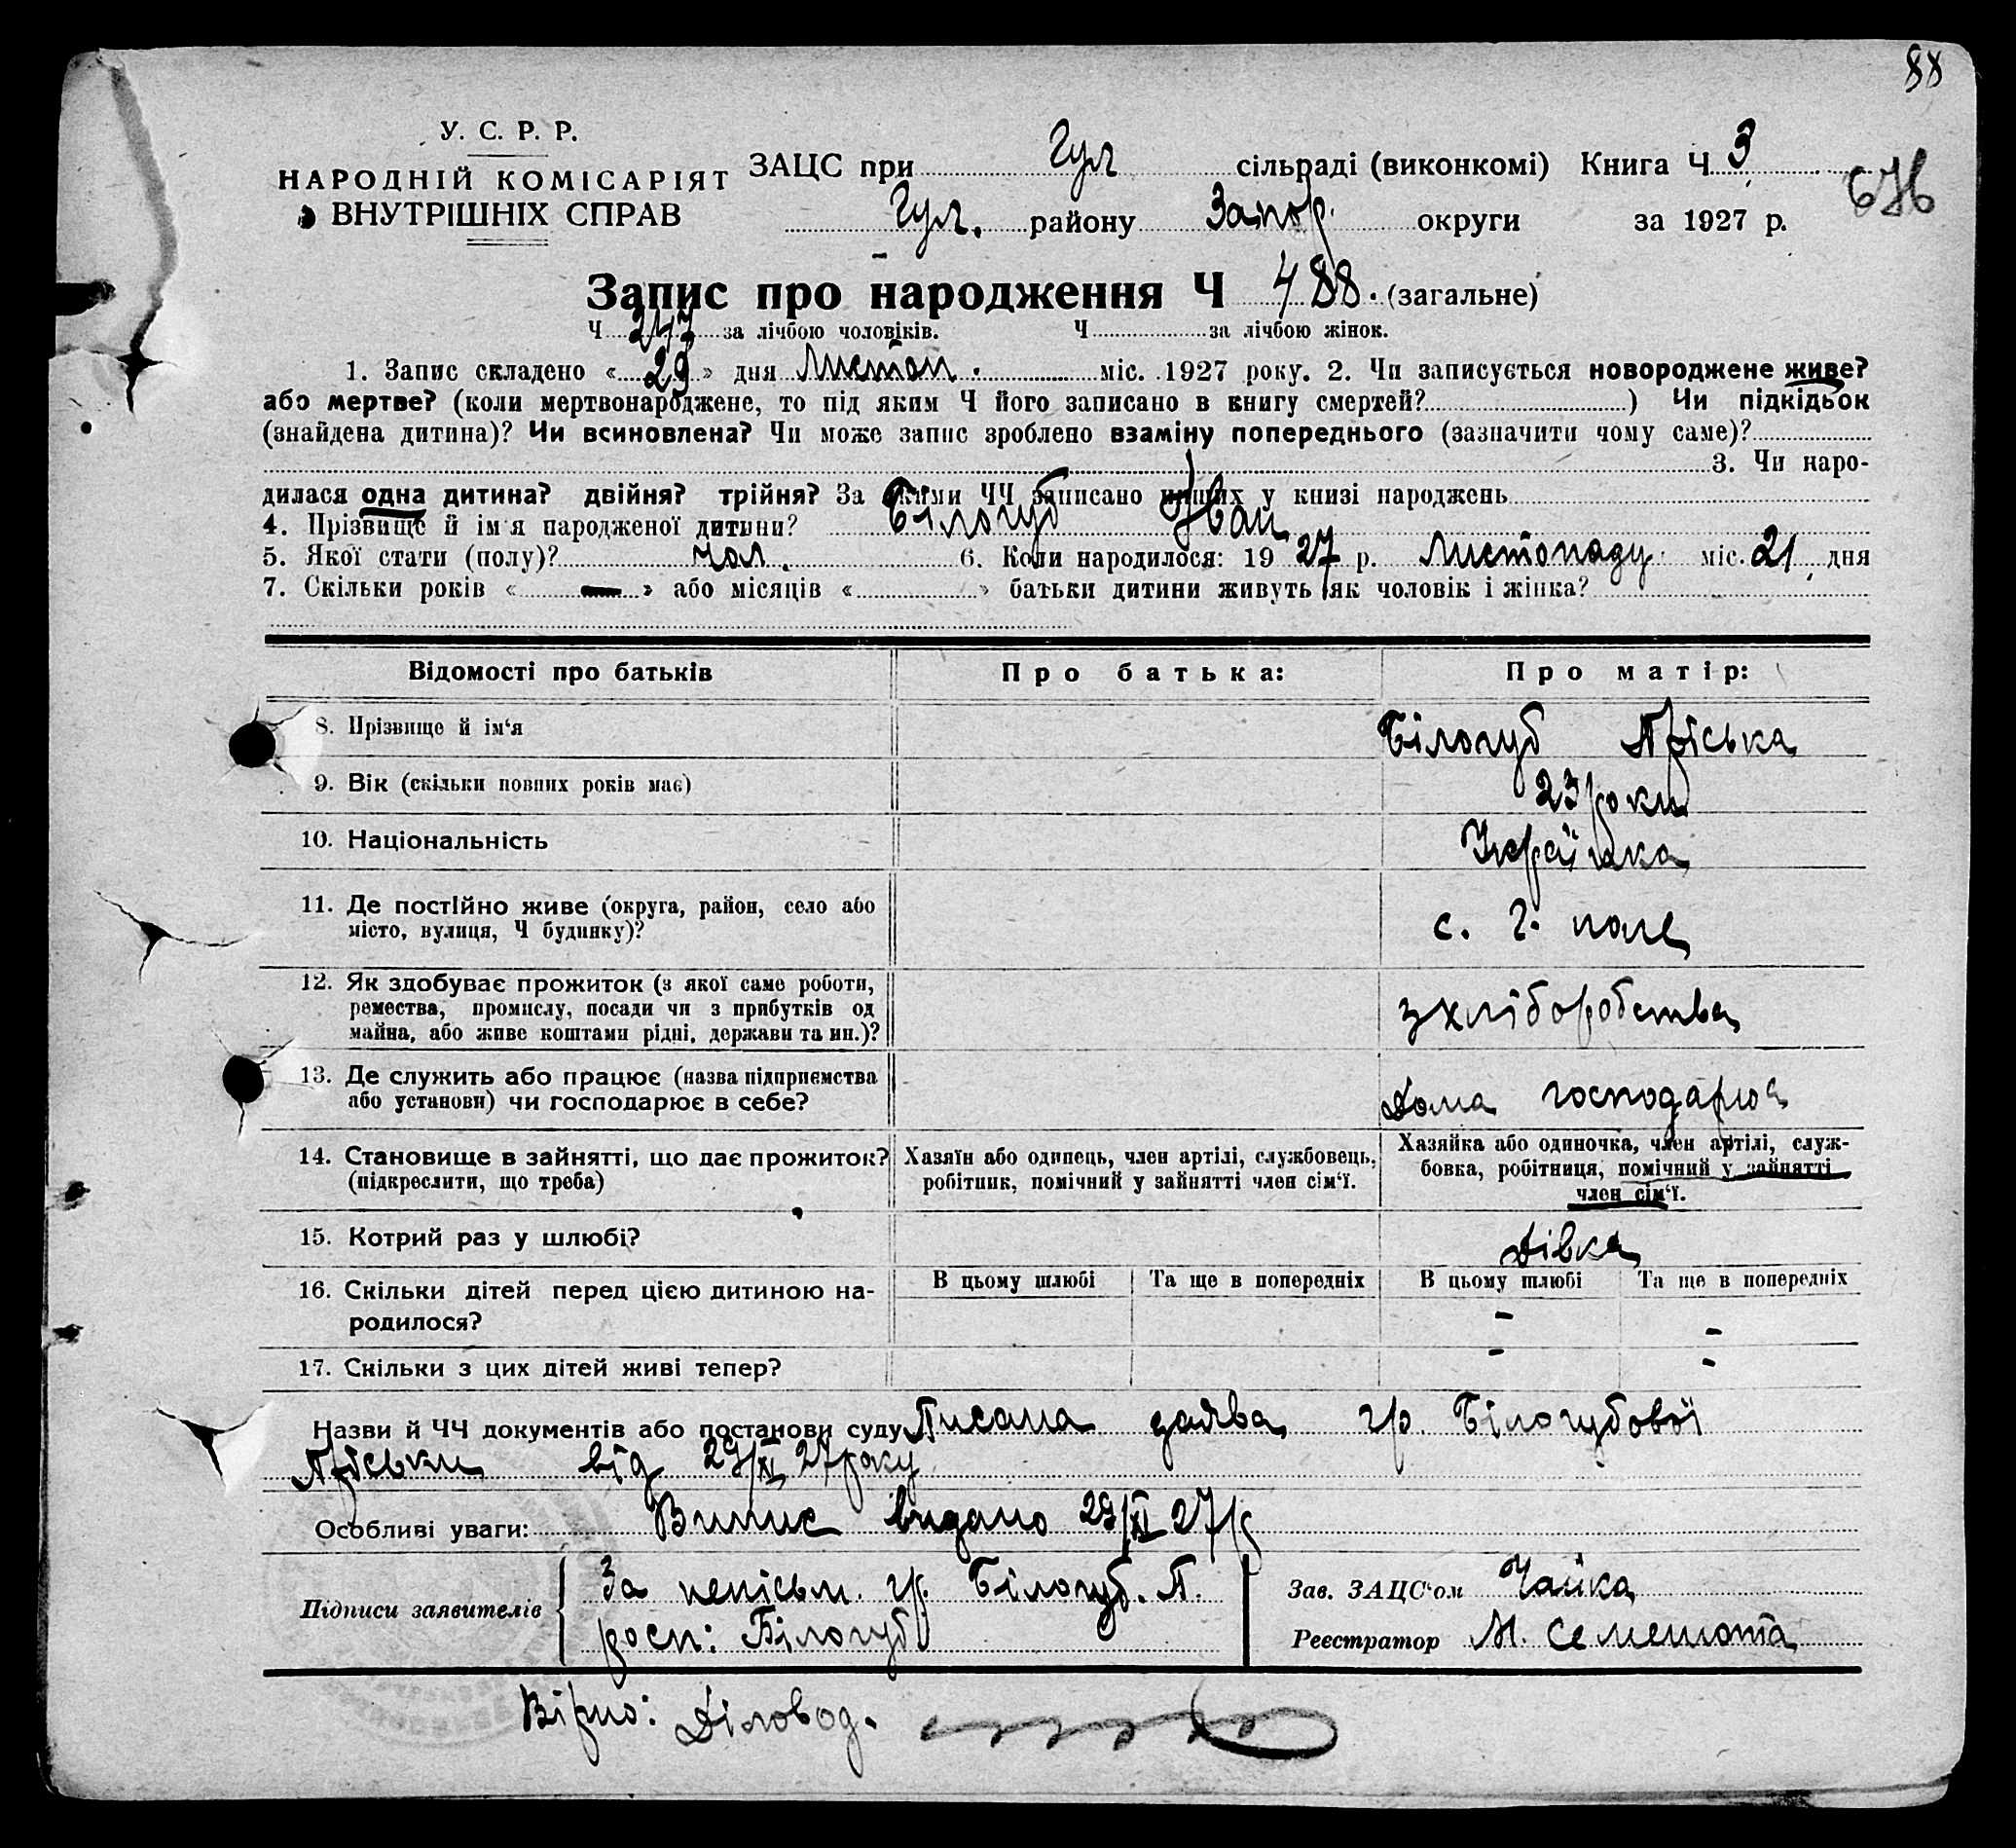 88
У. С. Р. Р.
НАРОДНІЙ КОМІСАРІЯТ
ВНУТРІШНІХ СПРАВ
ЗАЦС при Гул сільраді (виконкомі) Книга Ч 3
Гул. району Запор. округи за 1927 р.
Запис про народження Ч 488. (загальне)
Ч 247 за лічбою чоловіків. Ч за лічбою жінок.
1. Запис складено « 29 » дня Листоп. міс. 1927 року. 2. Чи записується новороджене живе?
або мертве? (коли мертвонароджене, то під яким Ч його записано в книгу смертей? ) Чи підкідьок
(знайдена дитина)? Чи всиновлена? Чи може запис зроблено взаміну попереднього (зазначити чому саме)?
3. Чи наро-
дилася одна дитина? двійня? трійня? За якими ЧЧ записано инших у книзі народжень
4. Прізвище й ім'я народженої дитини? Білогуб Іван
5. Якої стати (полу)? чол. 6. Коли народилося: 19 27 р. Листопаду міс. 21 дня
7. Скільки років « — » або місяців « » батьки дитини живуть як чоловік і жінка?
Відомості про батьків Про батька: Про матір:
8. Прізвище й ім'я Білогуб Пріська
9. Вік (скільки повних років має) 23 роки
10. Національність Українка
11. Де постійно живе (округа, район, село або
місто, вулиця, Ч будинку)? с. Г. поле
12. Як здобуває прожиток (з якої саме роботи,
ремества, промислу, посади чи з прибутків од
майна, або живе коштами рідні, держави та ин.)? з хліборобства
13. Де служить або працює (назва підприємства
або установи) чи господарює в себе? Дома господарює
14. Становище в зайнятті, що дає прожиток?
(підкреслити, що треба)
Хазяїн або одинець, член артілі, службовець,
робітник, помічний у зайнятті член сім'ї.
Хазяйка або одиночка, член артілі, служ-
бовка, робітниця, помічний у зайнятті
член сім'ї.
15. Котрий раз у шлюбі? Дівка
16. Скільки дітей перед цією дитиною на-
родилося?
В цьому шлюбі Та ще в попередніх В цьому шлюбі Та ще в попередніх
- -
17. Скільки з цих дітей живі тепер? - -
Назви й ЧЧ документів або постанови суду Писана заява гр. Білогубової
Пріськи від 29/XI 27 року
Особливі уваги: Випис видано 29/XI 27 р
Підписи заявителів За неписьм. гр. Білогуб. П.
росп: Білогуб
Зав. ЗАЦС'ом Чайка
Реєстратор М. Семенота
Вірно: Діловод.